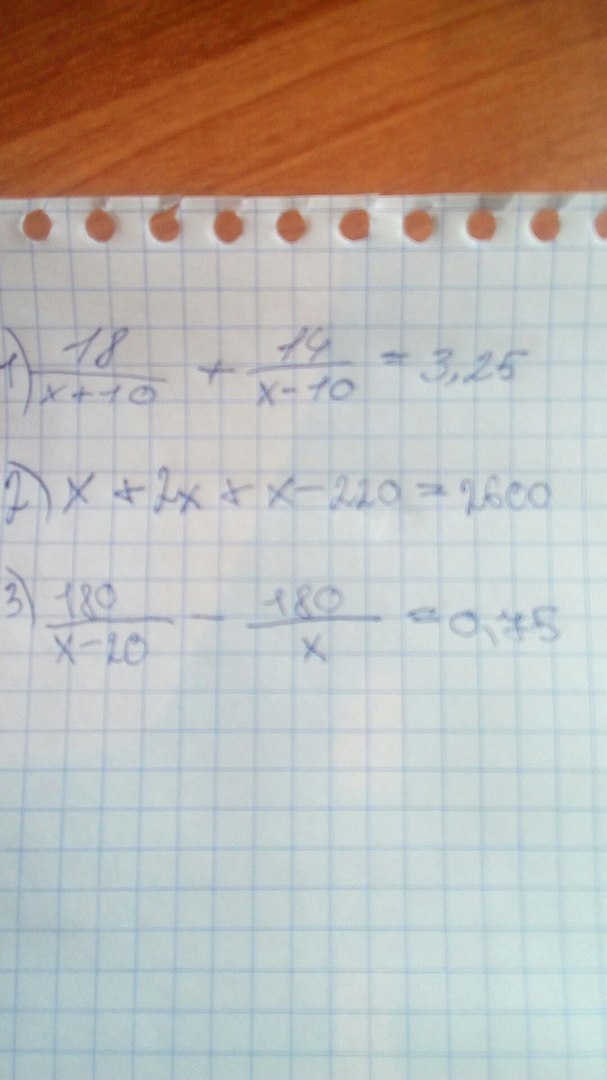 1) 18/(x+10) + 14/(x-10) = 3,25
2) x + 2x + x - 220 = 2600
3) 180/(x-20) - 180/x = 0,75